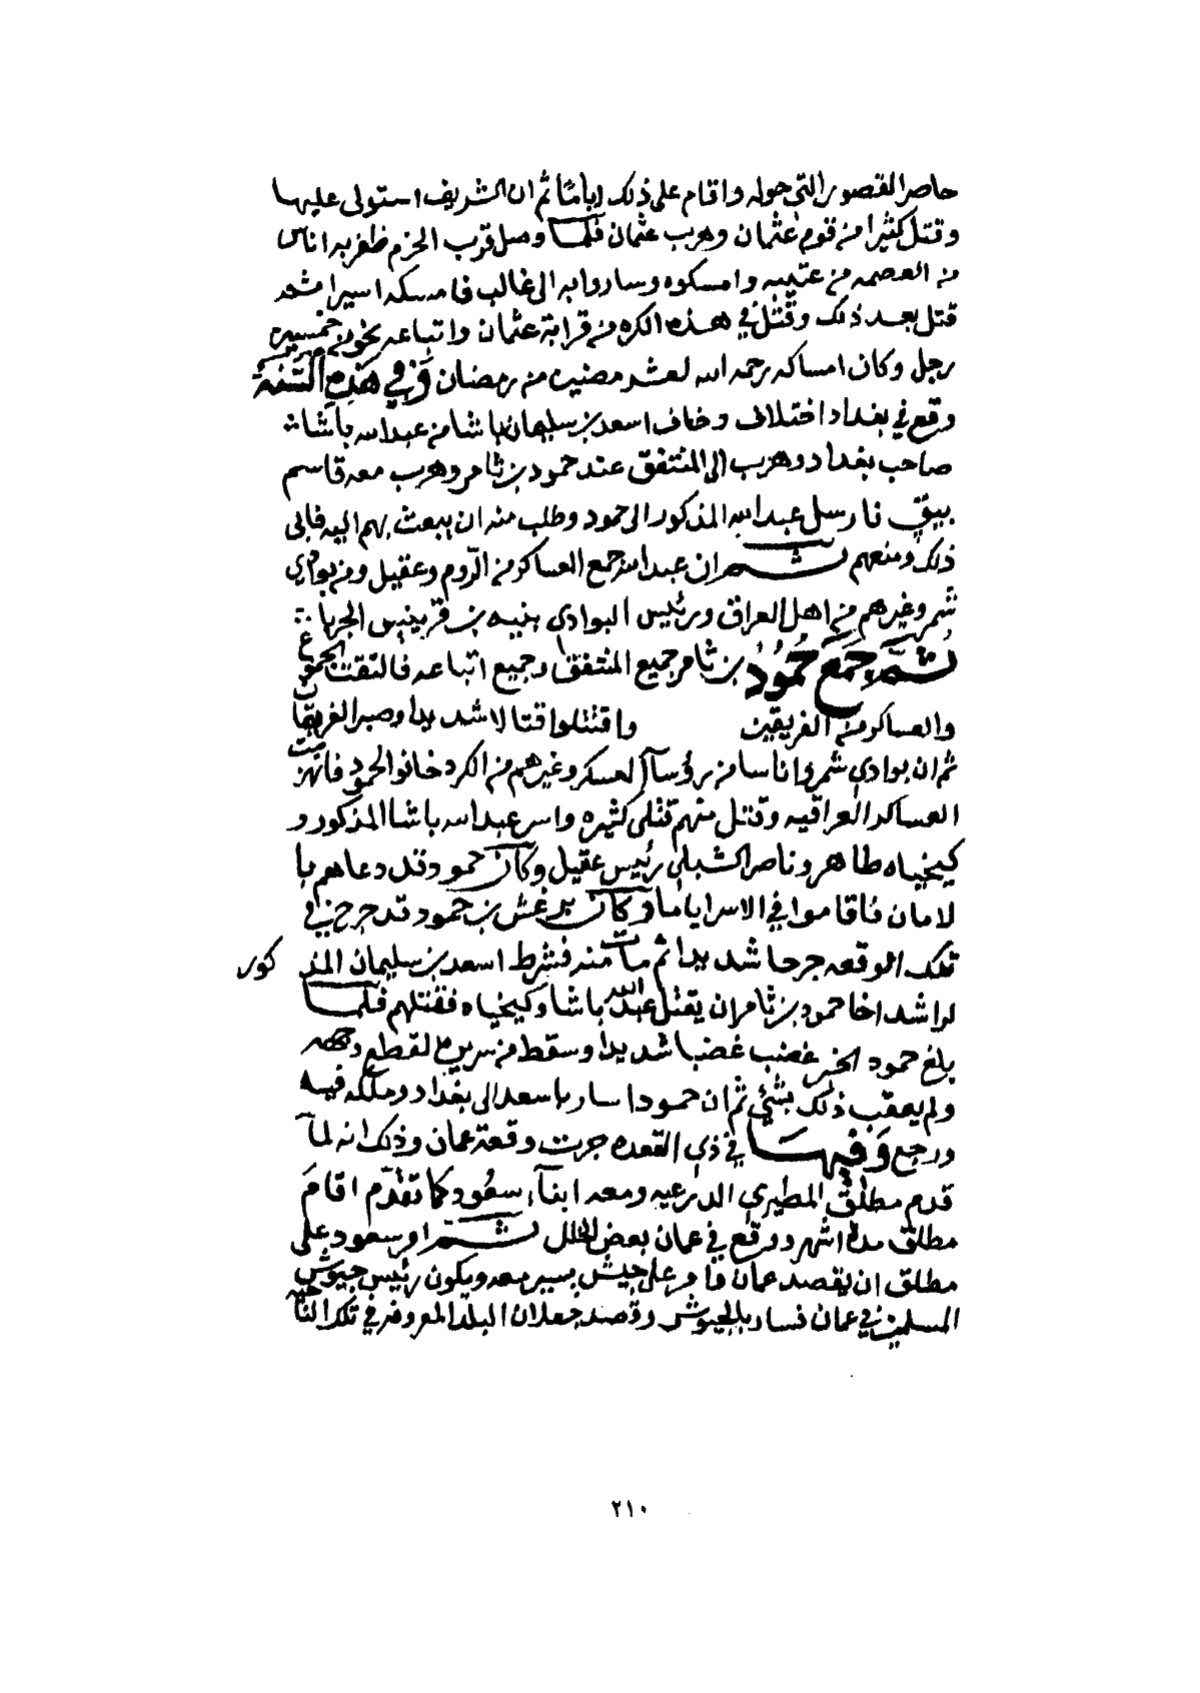 حاصر القصور التي حوله واقام على ذلك اياما ثم ان الشريف استولى عليها
وقتل كثيرا من قوم عثمان وهرب عثمان فلما وصل قرب الحزم ظفر به اناس
من العصمه من عتيبه وامسكوه وساروا به الى غالب فامسكه اسيرا ثم
قتل بعد ذلك وقتل في هذه الكره من قرابة عثمان واتباعه نحو من خمسين
رجل وكان امساكه رحمه الله لعشر مضين من رمضان وفي هذه السنة
وقع في بغداد اختلاف وخاف اسعد بن سليمان باشا من عبدالله باشا
صاحب بغداد وهرب الى المنتفق عند حمود بن ثامر وهرب معه قاسم
بيق فارسل عبدالله المذكور الى حمود وطلب منه ان يبعث بهم اليه فابى
ذلك ومنعهم ثم ان عبدالله جمع العساكر من الروم وعقيل ومن بوادي
شمر وغيرهم من اهل العراق ورئيس البوادي بنيه بن قرينيس الجربا
ثم جمع حمود بن ثامر جميع المنتفق وجميع اتباعه فالتقت الجموع
والعساكر من الفريقين واقتتلوا قتالا شديدا وصبر الفريقان
ثم ان بوادي شمر واناسا من رؤسآ العسكر وغيرهم من الكرد خانوا لحمود فانهزمت
العساكر العراقيه وقتل منهم قتلى كثيره واسر عبدالله باشا المذكور و
كيخياه طاهر وناصر الشبلي رئيس عقيل وكان حمود قد دعاهم با
لامان فاقاموا في الاسر اياما وكان برغش بن حمود قد جرح في
تلك الوقعه جرحا شديدا ثم مات منه فشرط اسعد بن سليمان المذ كور
لراشد اخا حمود بن ثامر ان يقتل عبدالله باشا وكيخياه فقتلهم فلما
بلغ حمود الخبر غضب غضبا شديدا وسقط من سريره لقطع وجهه
ولم يعقب ذلك بشئي ثم ان حمودا سار باسعد الى بغداد وملكه فيه
ورجع وفيها في ذي القعده جرت وقعة عمان وذلك انه لمآ
قدم مطلق المطيري الدرعيه ومعه ابنآء سعود كما تقدم اقام
مطلق مدة اشهر ووقع في عمان بعض الخلل ثم امر سعود على
مطلق ان يقصد عمان وامر على جيش يسير معه ويكون رئيس جيوش
المسلمين في عمان فسار بالجيوش وقصد جعلان البلد المعروفه في تلك الناحيه
٢١٠